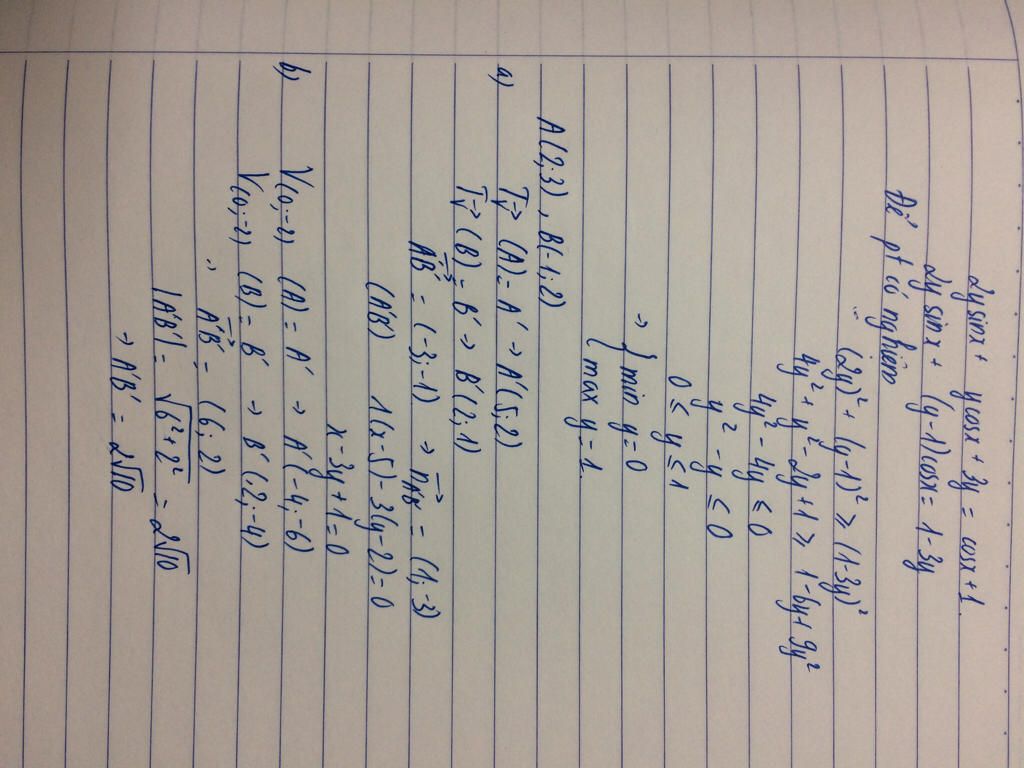 2y sinx + y cosx + 3y = cosx + 1.
2y sinx + (y-1)cosx = 1-3y
Để pt có nghiệm
(2y)² + (y-1)² ≥ (1-3y)²
4y² + y² - 2y + 1 ≥ 1 - 6y + 9y²
4y² - 4y ≤ 0
y² - y ≤ 0
0 ≤ y ≤ 1
→ { min y = 0
{ max y = 1.
A(2;3), B(-1;2)
a) T_v→ (A) = A' → A'(5;2)
T_v→ (B) = B' → B'(2;1)
A'B'→ = (-3;-1) → n→_A'B' = (1;-3)
(A'B') 1(x-5) - 3(y-2) = 0
x - 3y + 1 = 0
b) V(0;-2) (A) = A' → A'(-4;-6)
V(0;-2) (B) = B' → B'(2;-4)
A'B'→ = (6;2)
|A'B'| = √6²+2² = 2√10
→ A'B' = 2√10